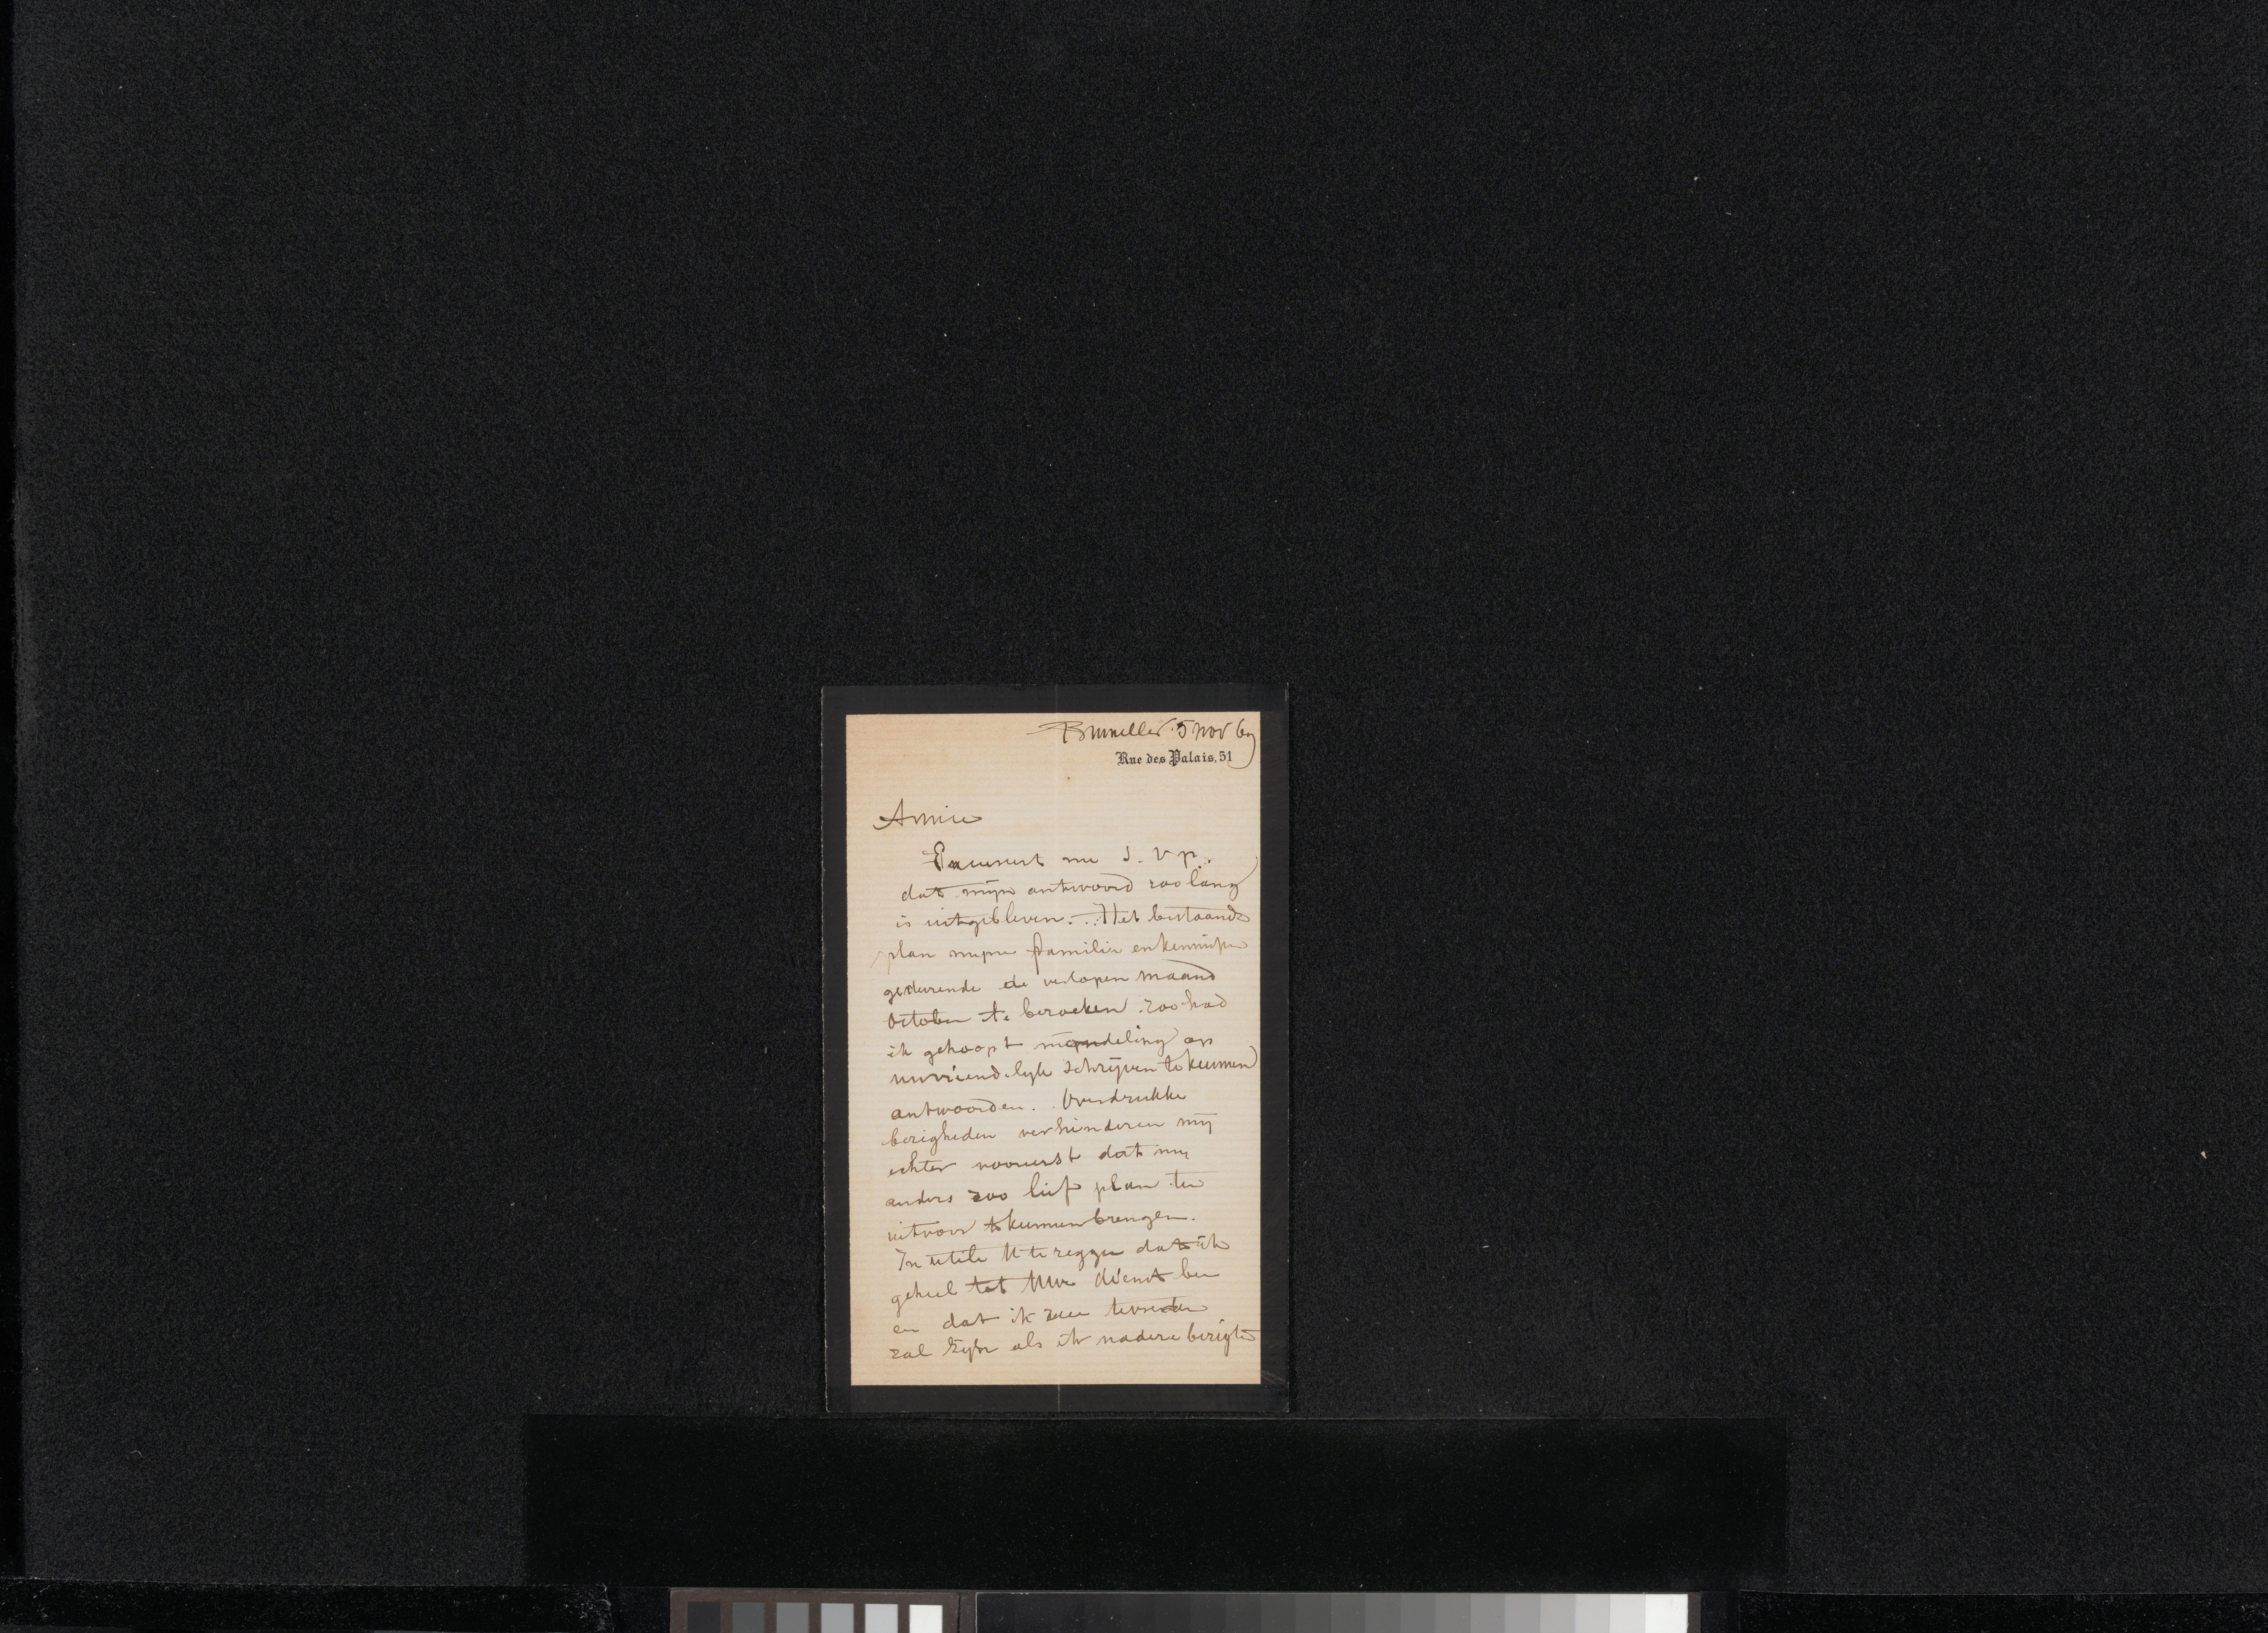 Bruxelles 5 Nov 69
Rue des Palais, 51
Amice
Excuseert me S.V.p.
dat mijn antwoord zoo lang
is uitgebleven. Het bestaande
plan mijne familie en kennissen
gedurende de verlopen maand
October te bezoeken zoo had
ik gehoopt mondeling op
uw vriendelijk schrijven te kunnen
antwoorden. Overdrukke
bezigheden verhinderen mij
echter vooreerst dat mij
anders zoo lief plan ten
uitvoer te kunnen brengen.
Inutile U te zeggen dat ik
geheel tot Uwe dienst ben
en dat ik zeer tevreden
zal zijn als ik nadere berigten